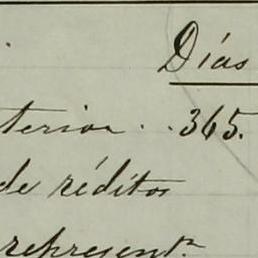 Días
terior . . 365.
de réditos
represent.ⁿ